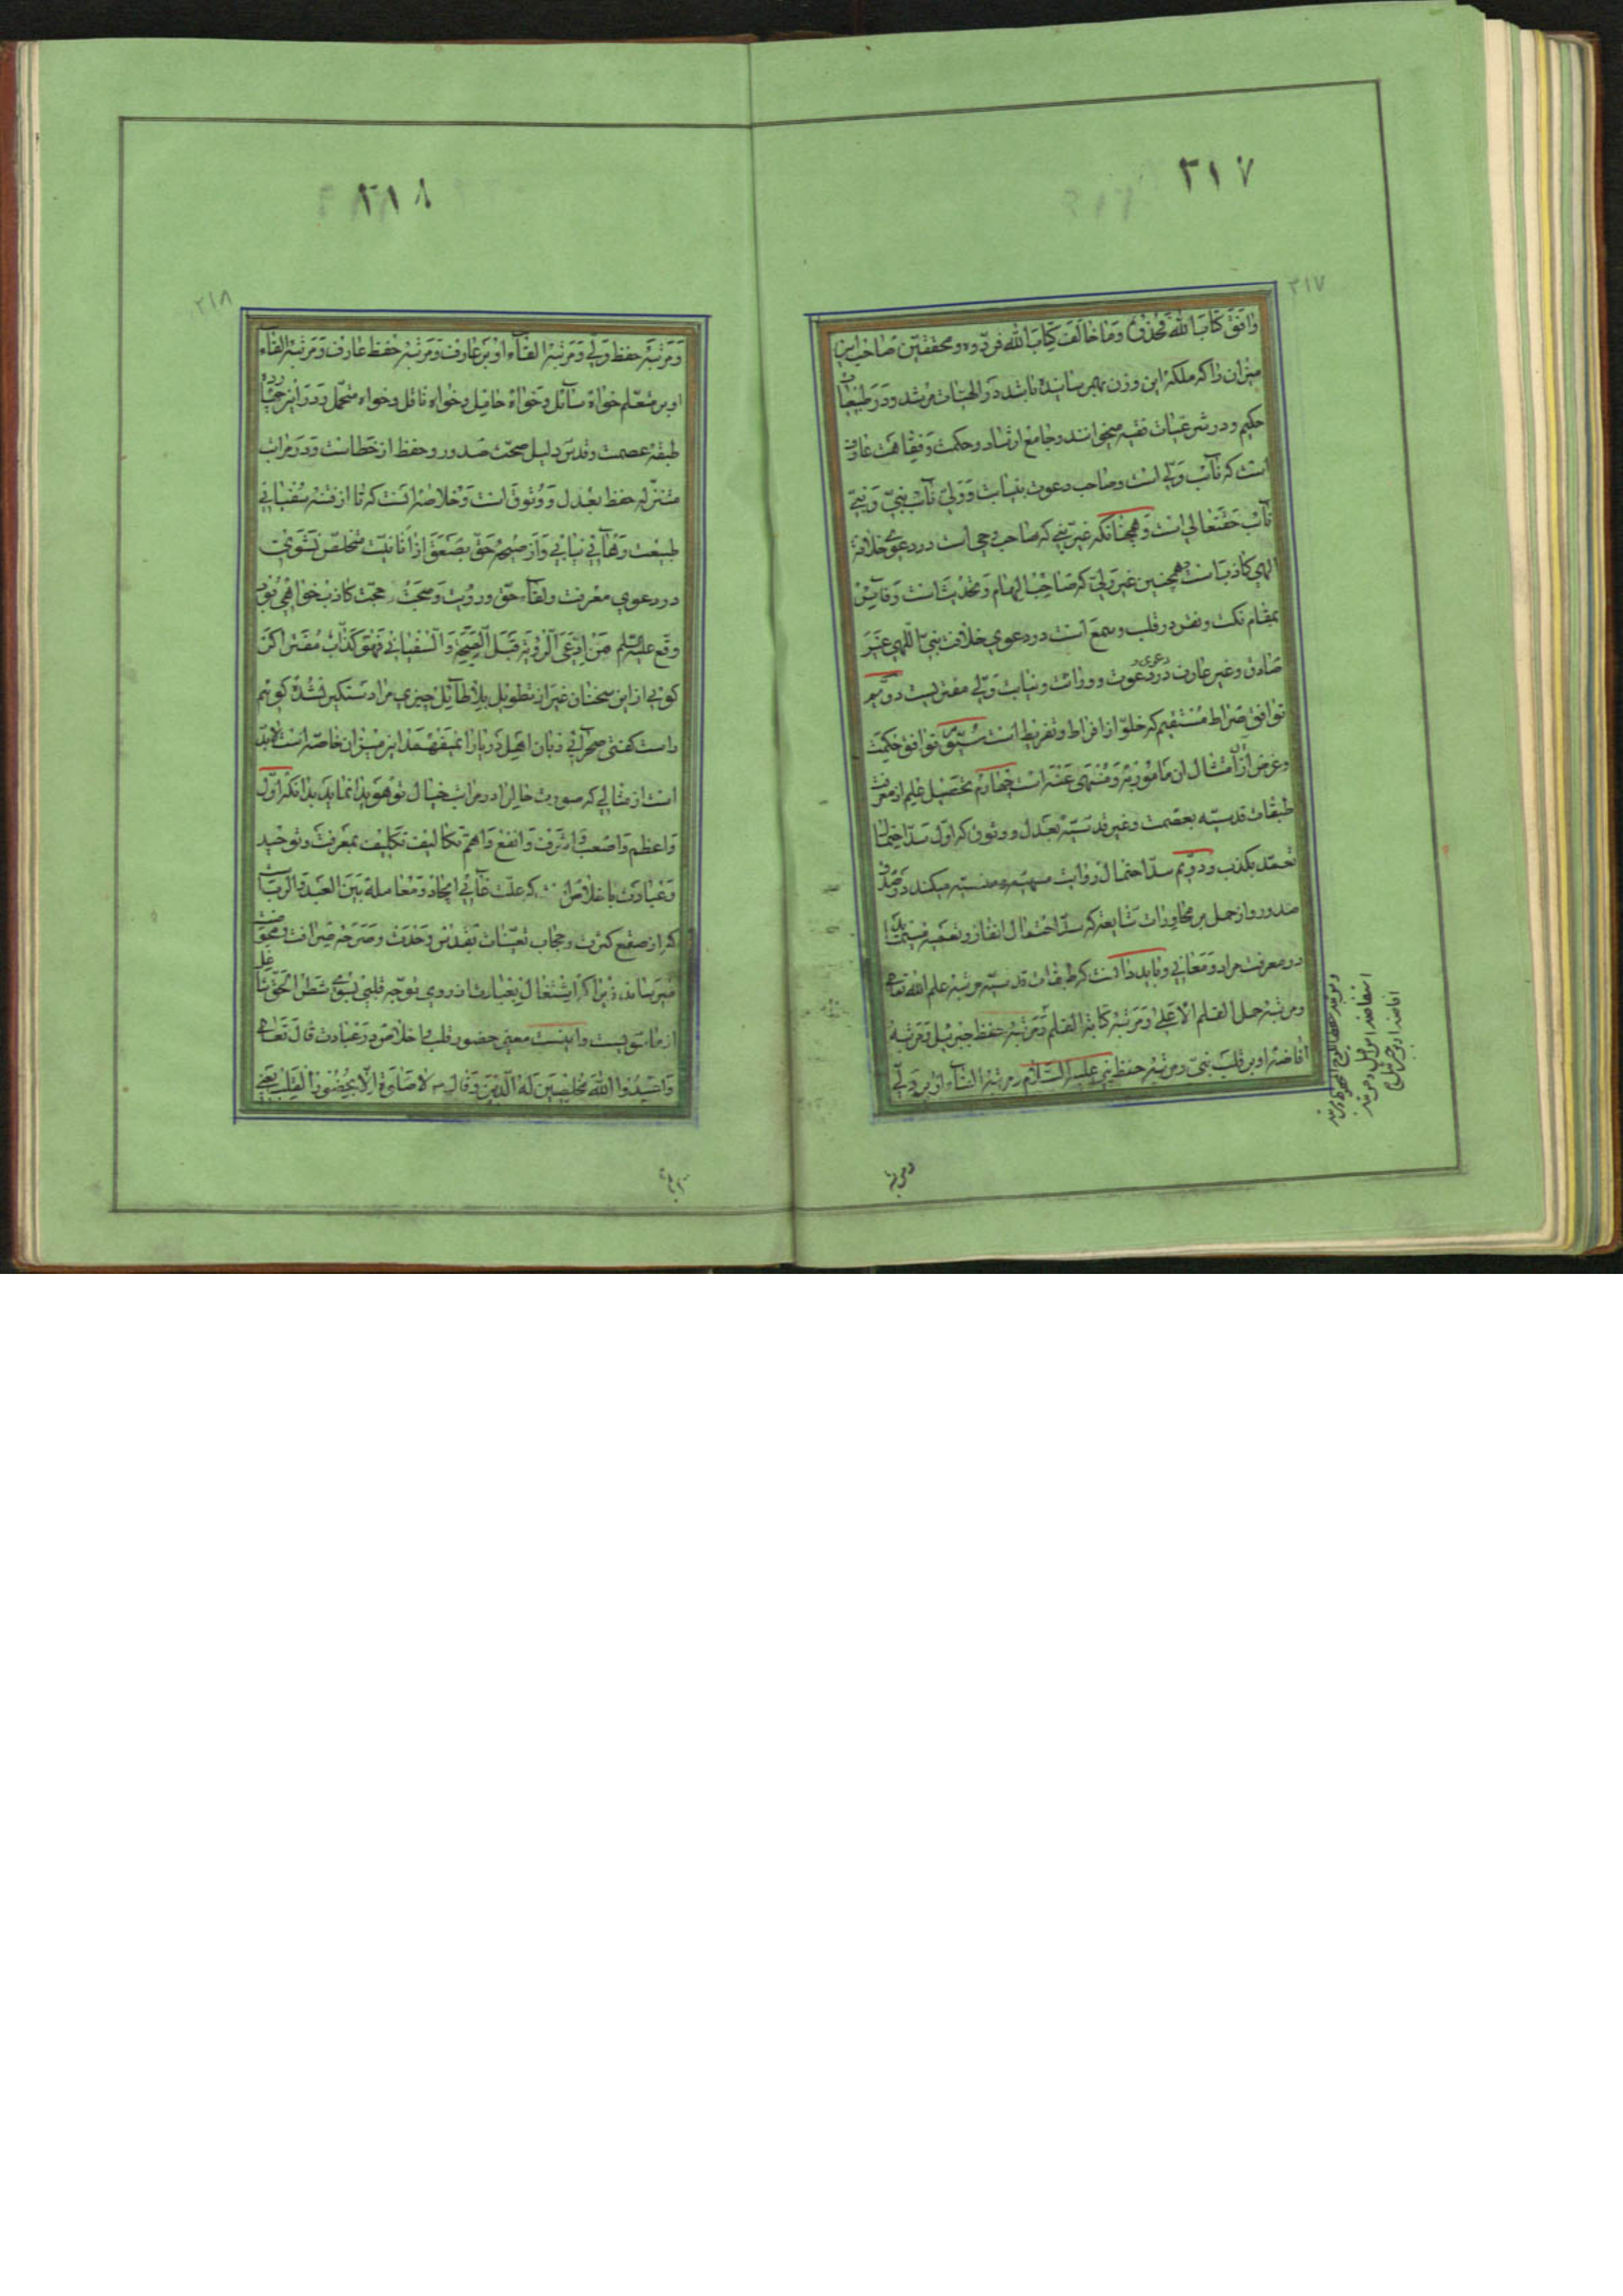 ٣١٧
٣١٧
وافق كتاب الله فخذوه وما خالف كتاب الله فردّوه ومحققين صاحب اين
ميزان را كه ملكهٔ اين وزن بهم رسانيده باشد در الهيات مرشد ودر طبيعيات
حكيم ودر شرعيات فقيه ميخوانند وجامع ارشاد وحكمت وفقاهت عارف
است كه نآئب ولي است وصاحب دعوت بنيابت وولي نآئب نبي ونبي
نآئب حقتعالي است وهمچنانكه غير نبي كه صاحب وحي است در دعوي خلافة
الهي كاذب است همچنين غير ولي كه صاحب الهام وتحديث است وفايض
بمقام نكت ونقر در قلب وسمع است در دعوي خلافت نبي اللهي غير
صادق وغير عارف در دعوي دعوت ووراثت ونيابت ولي مفتريست دويم
توافق صراط مستقيم كه خلوّ از افراط وتفريط است سيّم توافق حكمت
وغرض از امتثال آن مامور به ومنهي عنه است چهارم تحصيل علم از معرفت
طبقات قدسيه بعصمت وغير قدسيّه بعدل ووثوق كه اوّل سدّ احتمال
تعمّد بكذب ودويم سدّ احتمال روايت ميكند در صدق
صدور واز حمل بر محاورات شايعه كه سدّ احتمال الغاز وتعميه
در معرفت مراد ومعاني وبايد دانست كه طبقات قدسيّه مرتبهٔ علم الله تعالي
ومرتبهٔ حمل القلم الاعلي ومرتبهٔ كتابة القلم ومرتبهٔ حفظ جبرئيل ومرتبهٔ
افاضهٔ او بر قلب نبي ومرتبهٔ حفظ نبي عليه السلام ومرتبهٔ القآء او بر ولي
ومرتبهٔ حفظ اللوح المحفوظ ومرتبهٔ
استفاضهٔ اسرافيل ومرتبهٔ
افاضهٔ او بر جبرئيل
ومرتبهٔ
٣١٨
٣١٨
ومرتبهٔ حفظ ولي ومرتبهٔ القآء او بر عارف ومرتبهٔ حفظ عارف ومرتبهٔ القآء
او بر متعلم خواه سآئل وخواه حامل وخواه ناقل وخواه متحمل ودر اين
طبقهٔ عصمت وقدس دليل صحت صدور وحفظ از خطاست ودر مراتب
متنزله حفظ بعدل ووثوق است وخلاصه آنست كه تا از فتنهٔ سفياني
طبيعت رهائي نيابي واز صيحهٔ حق بصعق از انانيت متخلص نشوي
در دعوي معرفت ولقآء حق ورؤيت وصحبت حجت كاذب خواهي بود
وقع عليه السلم من ادعي الرؤية قبل الصيحة والسفياني فهو كذاب مفتر اكر
كوئي از اين سخنان غير از تطويل بلا طآئل چيزي مرا دستكير نشده كويم
راست كفتي صحرائي زبان اهل دريا را نميفهمد اين ميزان خاصه است لابد
است از مثالي كه صورت حال را در مرات خيال تو هويدا نمايد بدانكه اوّل
واعظم واصعب واشرف وانفع واهم تكاليف تكليف بمعرفت وتوحيد
وعبادت باخلاص است كه علت غآئي ايجاد ومعاملهٔ بين العبد والرب است
كه از صقع كثرت وحجاب تعينات بقدس وحدت وصرحهٔ صرافت ومحوضت
ميرساند زيرا كه اشتغال بعبادت از روي توجه قلبي بسوي شطر الحق تغافل
از ماسويست واينست معني حضور قلب واخلاص در عبادت قال تعالي
واعبدوا الله مخلصين له الدين وقال ص لا صلوة الا بحضور القلب يعني